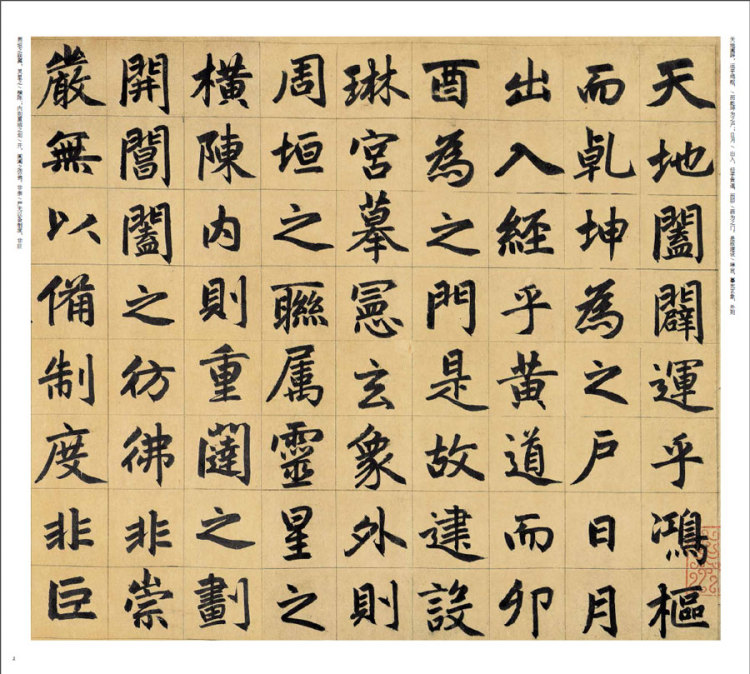 天地闔闢運乎鴻樞
而乹坤為之户日月
出入經乎黄道而卯
酉為之門是故建設
琳宮摹憲玄象外則
周垣之聮属靈星之
橫陳内則重闥之劃
開閶闔之彷彿非崇
嚴無以備制度非巨